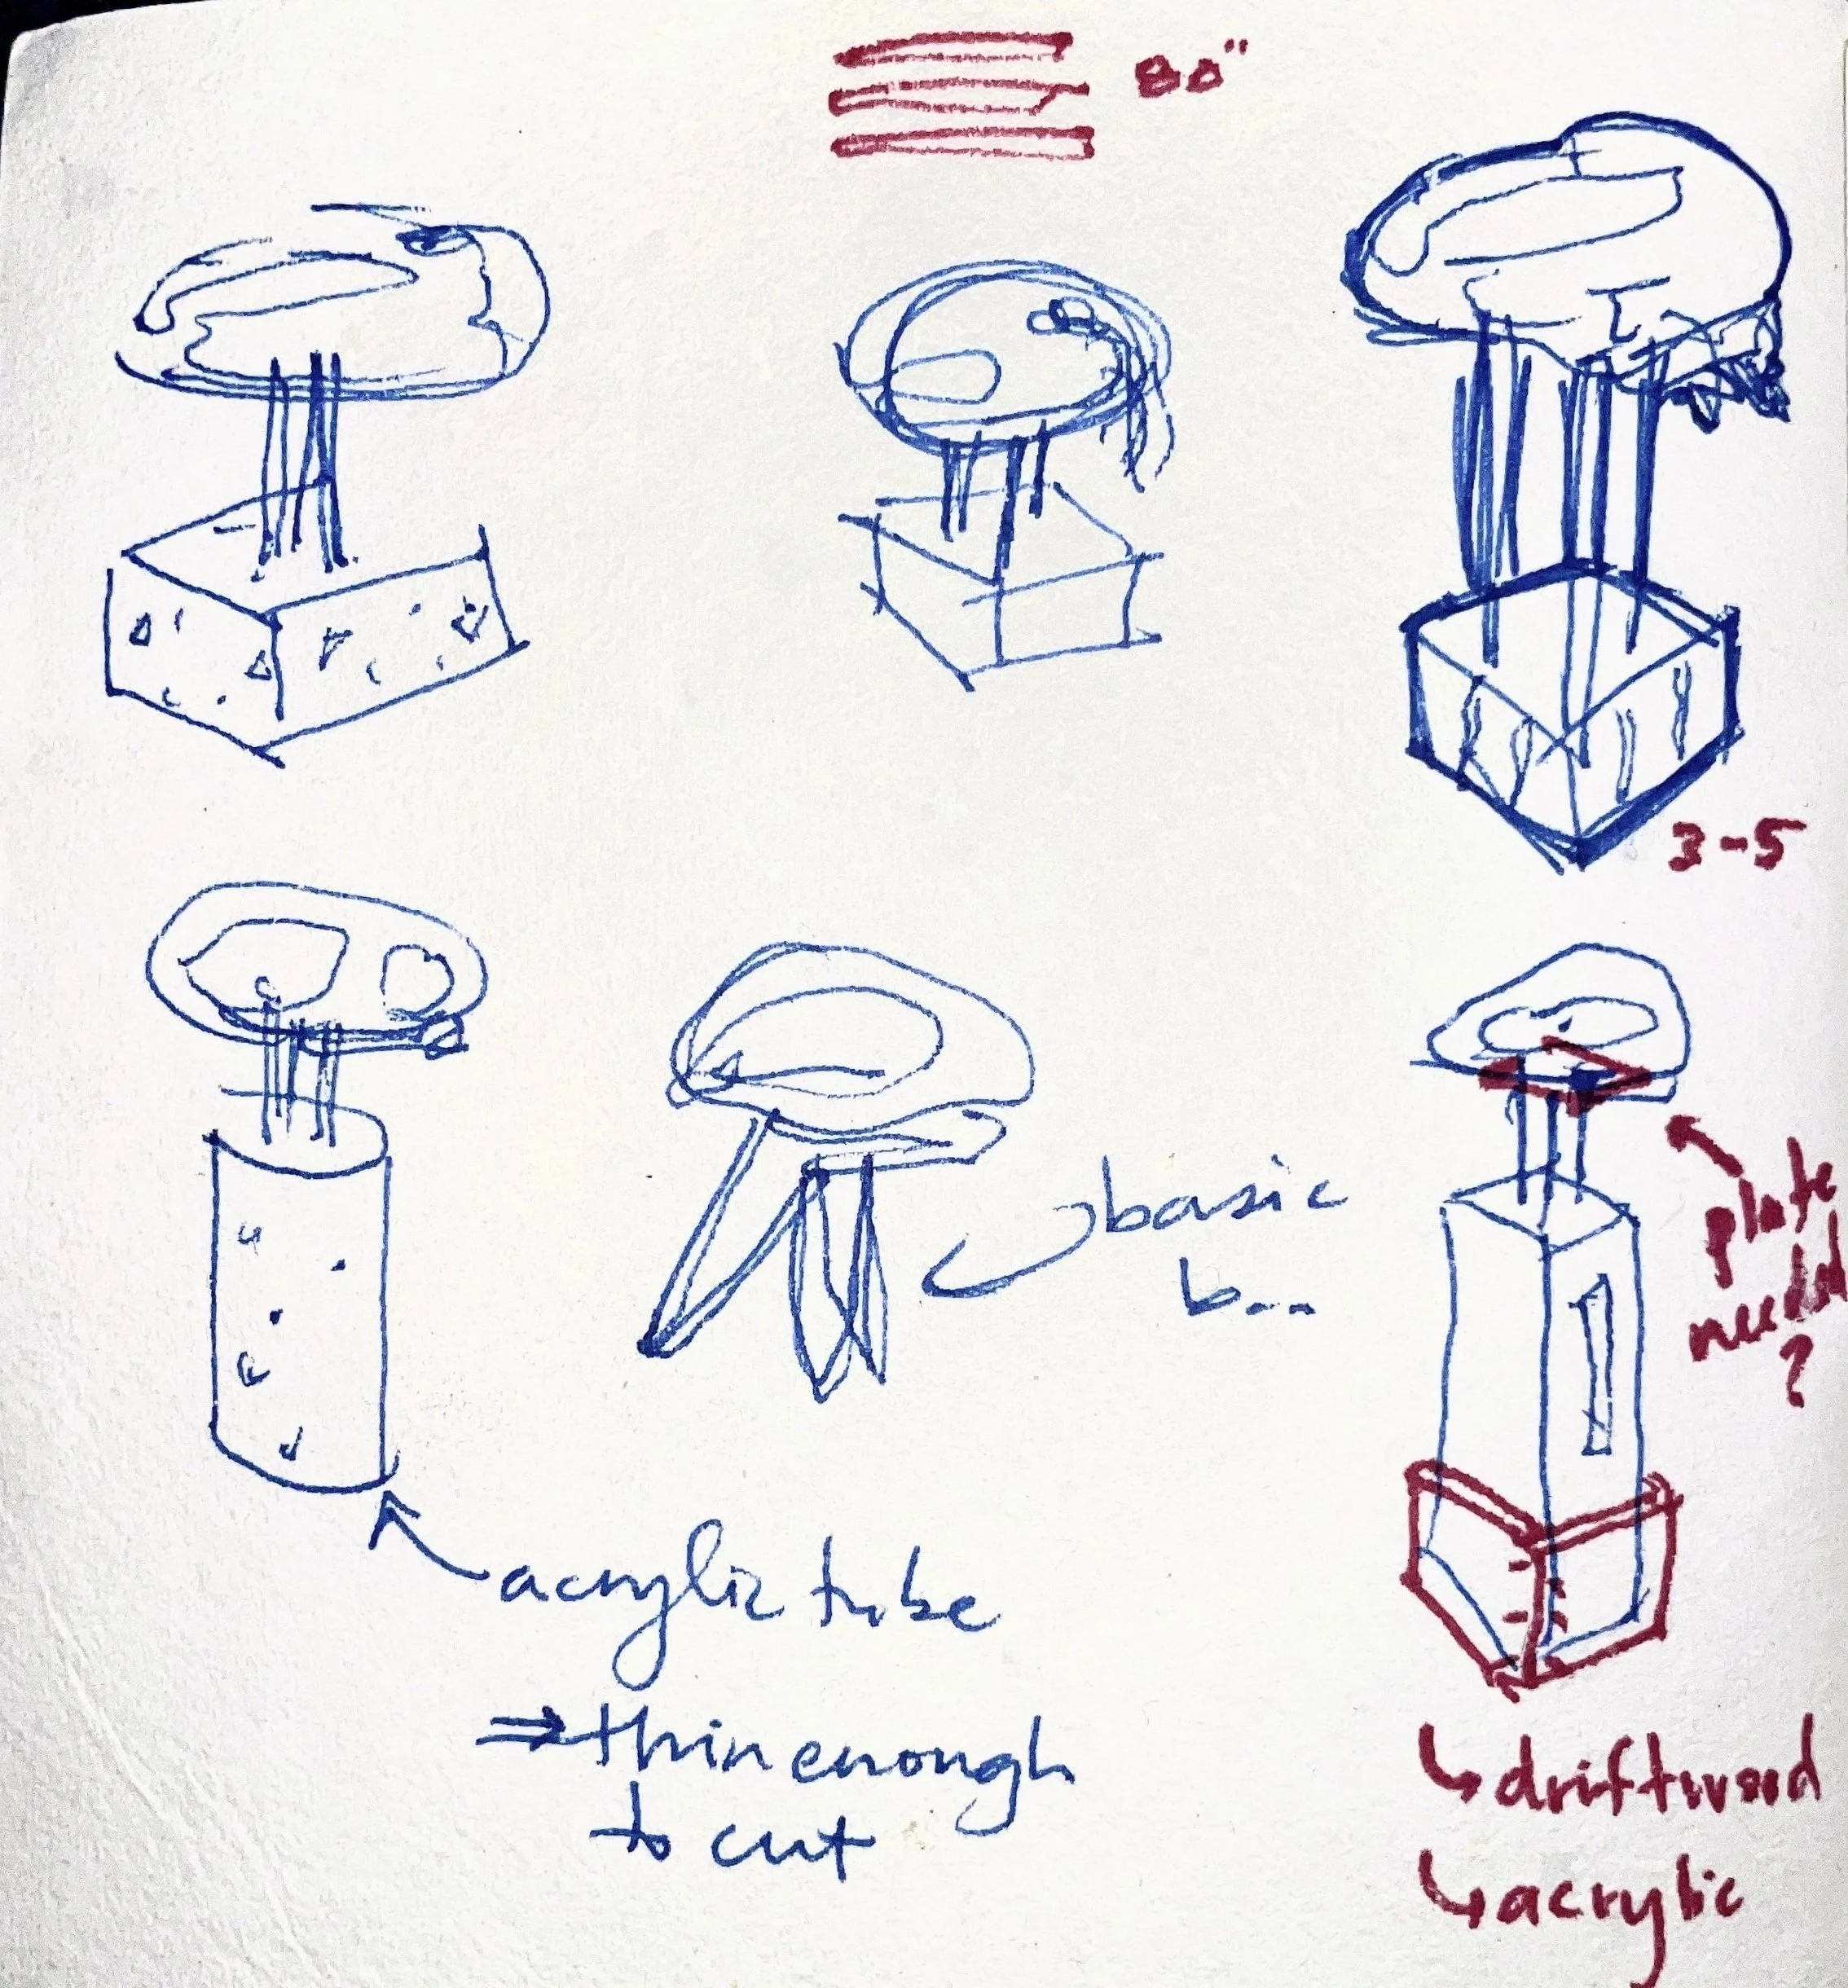 80"
3-5
basic
b...
plate
needed
?
acrylic tube
⇒ thin enough
to cut
↳ driftwood
↳ acrylic